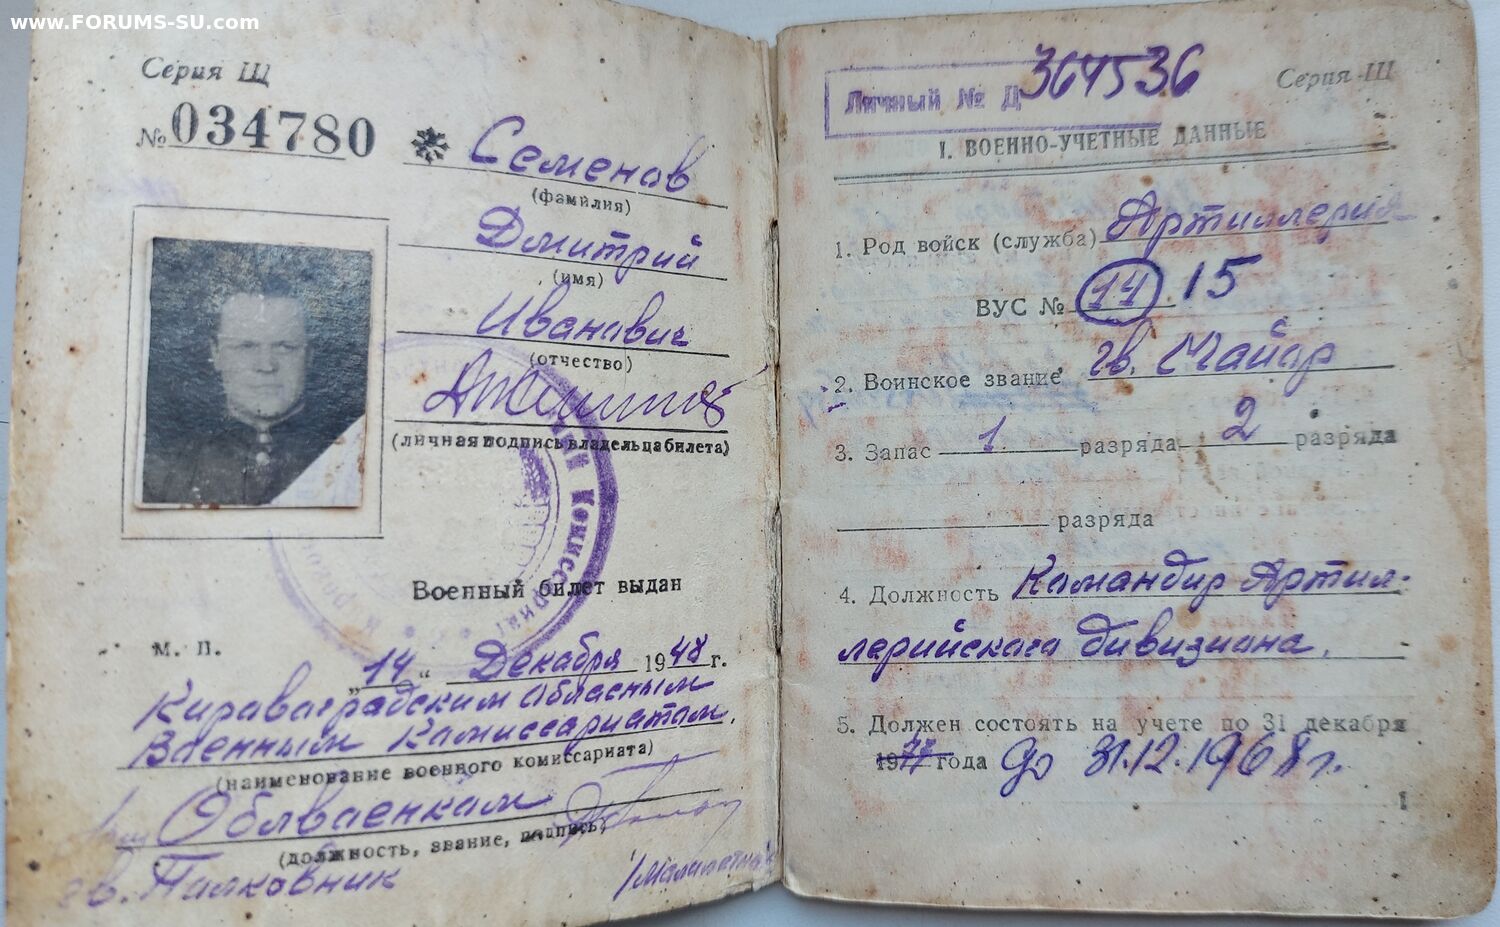 www.FORUMS-SU.com
Серия Щ
№ 034780
Семенов
(фамилия)
Дмитрий
(имя)
Иванович
(отчество)
(личная подпись владельца билета)
Военный билет выдан
М. П.
„14“ Декабря 1948 г.
Кировоградским Обласным
Военным Комиссариатом.
(наименование военного комиссариата)
Облвоенком
(должность, звание, подпись)
гв. Полковник
Личный № Д 364536
Серия Щ
I. ВОЕННО-УЧЕТНЫЕ ДАННЫЕ
1. Род войск (служба) Артиллерия
ВУС № 14 15
2. Воинское звание гв. Майор
3. Запас 1 разряда 2 разряда
разряда
4. Должность Командир Артил-
лерийского дивизиона.
5. Должен состоять на учете по 31 декабря
19 года до 31.12.1968 г.
1